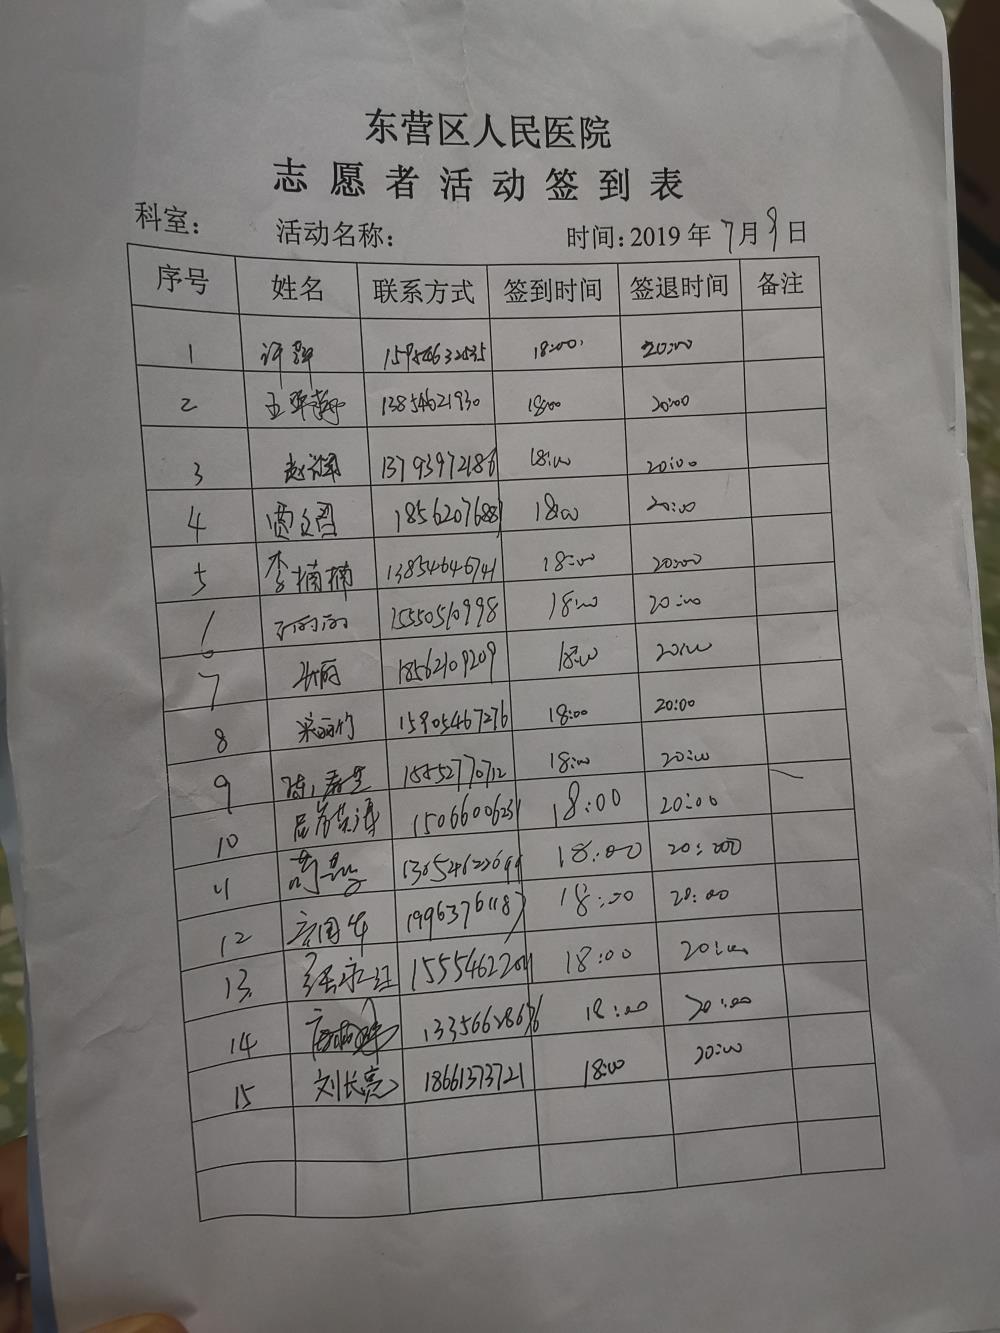 东营区人民医院
志愿者活动签到表
科室： 活动名称： 时间：2019年7月9日
序号 姓名 联系方式 签到时间 签退时间 备注
1 许 18:00 20:00
2 王 13854621930 18:00 20:00
3 赵 13793972186 18:00 20:00
4 贾文 18:00 20:00
5 李楠楠 13854646741 18:00 20:00
6 丽丽 15550510998 18:00 20:00
7 张丽 18562109209 18:00 20:00
8 15905467276 18:00 20:00
9 陈春 15552770712 18:00 20:00
10 15066006231 18:00 20:00
11 18:00 20:00
12 国华 19963761187 18:00 20:00
13 18:00 20:00
14 13356628676 18:00 20:00
15 刘长亮 18661373721 18:00 20:00